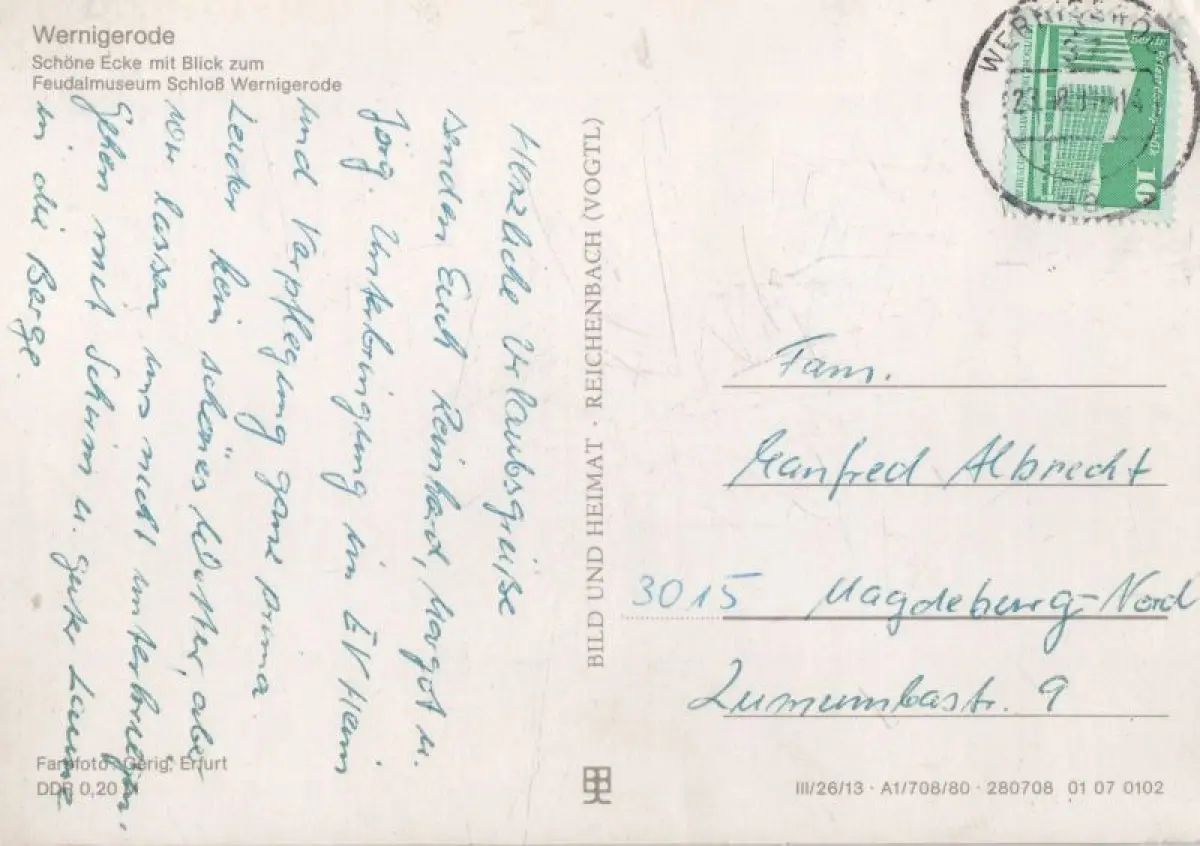 Wernigerode
Schöne Ecke mit Blick zum
Feudalmuseum Schloß Wernigerode
Herzliche Urlaubsgrüße
senden Euch Reinhard, Margot u.
Jörg. Unterbringung im EV Heim
und Verpflegung ganz prima
Leider kein schönes Wetter, aber
wir lassen uns nicht unterkriegen.
Gehen mit Schirm u. guter Laune
in die Berge.
Farbfoto: Gerig, Erfurt
DDR 0,20 M
BILD UND HEIMAT · REICHENBACH (VOGTL)
WERNIGERODE
10
Fam.
Manfred Albrecht
3015 Magdeburg-Nord
Lumumbastr. 9
III/26/13 · A1/708/80 · 280708 01 07 0102